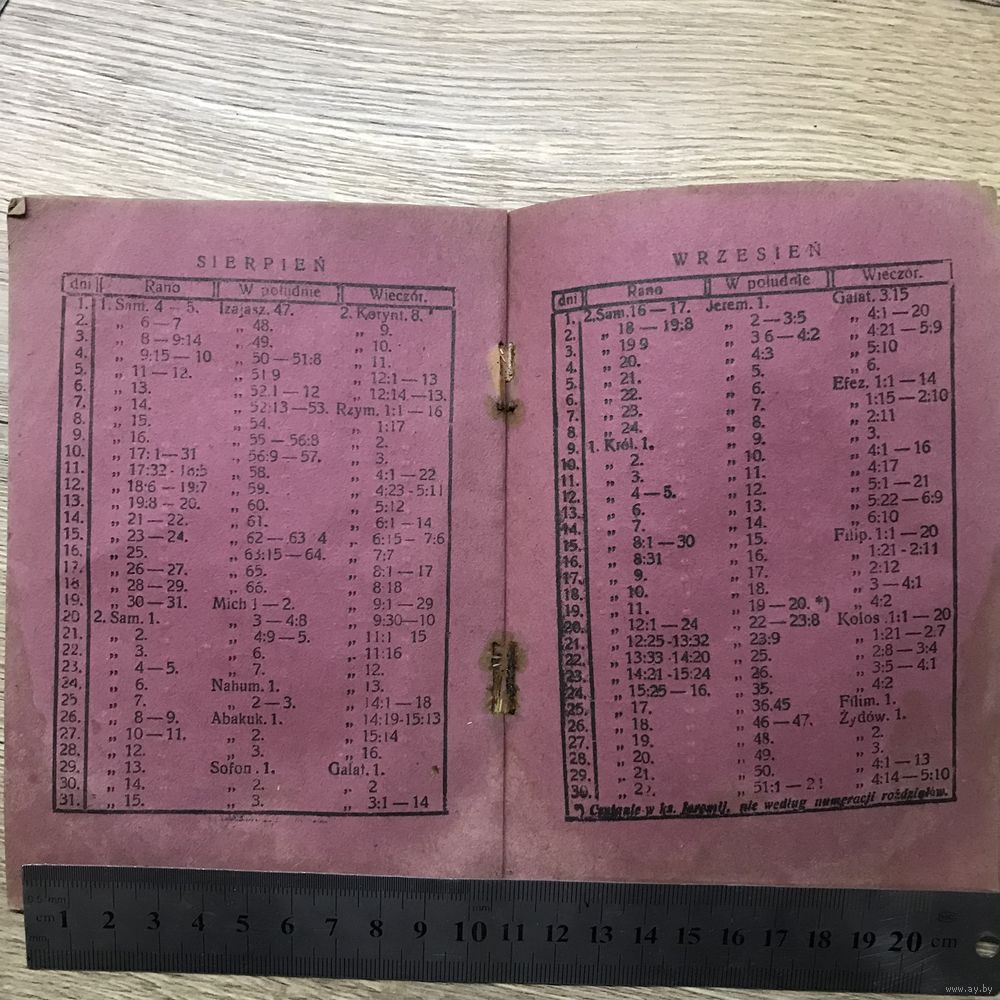 SIERPIEŃ
dni Rano W południe Wieczór.
1. 1. Sam. 4 — 5. Izajasz. 47. 2. Korynt. 8.
2. „ 6 — 7 „ 48. „ 9.
3. „ 8 — 9:14 „ 49. „ 10.
4. „ 9:15 — 10 „ 50 — 51:8 „ 11.
5. „ 11 — 12. „ 51 9 „ 12:1 — 13
6. „ 13. „ 52.1 — 12 „ 12:14 — 13.
7. „ 14. „ 52:13 — 53. Rzym. 1:1 — 16
8. „ 15. „ 54. „ 1:17
9. „ 16. „ 55 — 56:8 „ 2.
10. „ 17: 1 — 31 „ 56:9 — 57. „ 3.
11. „ 17:32 - 18:5 „ 58. „ 4:1 — 22
12. „ 18·6 — 19:7 „ 59. „ 4:23 - 5:11
13. „ 19:8 — 20. „ 60. „ 5:12
14. „ 21 — 22. „ 61. „ 6:1 — 14
15. „ 23 — 24. „ 62 — 63 4 „ 6:15 - 7:6
16. „ 25. „ 63:15 — 64. „ 7:7
17. „ 26 — 27. „ 65. „ 8:1 — 17
18 „ 28 — 29. „ 66. „ 8·18
19. „ 30 — 31. Mich 1 — 2. „ 9:1 — 29
20 2. Sam. 1. „ 3 — 4:8 „ 9:30—10
21. „ 2. „ 4:9 — 5. „ 11:1 15
22. „ 3. „ 6. „ 11:16
23. „ 4 — 5. „ 7. „ 12.
24. „ 6. Nahum. 1. „ 13.
25 „ 7. „ 2 — 3. „ 14:1 — 18
26. „ 8 — 9. Abakuk. 1. „ 14:19-15:13
27. „ 10 — 11. „ 2. „ 15:14
28. „ 12. „ 3. „ 16.
29. „ 13. Sofon . 1. Galat. 1.
30. „ 14. „ 2. „ 2
31. „ 15. „ 3. „ 3:1 — 14
WRZESIEŃ
dni Rano W południe Wieczór.
1. 2.Sam.16 — 17. Jerem. 1. Galat. 3.15
2. „ 18 — 19:8 „ 2 — 3:5 „ 4:1 — 20
3. „ 19 9 „ 3 6 — 4:2 „ 4:21 — 5:9
4. „ 20. „ 4:3 „ 5:10
5. „ 21. „ 5. „ 6.
6. „ 22. „ 6. Efez. 1:1 — 14
7. „ 23. „ 7. „ 1:15 — 2:10
8. „ 24. „ 8. „ 2:11
9. 1. Król. 1. „ 9. „ 3.
10. „ 2. „ 10. „ 4:1 — 16
11. „ 3. „ 11. „ 4:17
12. „ 4 — 5. „ 12. „ 5:1 — 21
13. „ 6. „ 13. „ 5:22 — 6:9
14. „ 7. „ 14. „ 6:10
15. „ 8:1 — 30 „ 15. Filip. 1:1 — 20
16. „ 8:31 „ 16. „ 1:21 - 2:11
17. „ 9. „ 17. „ 2:12
18. „ 10. „ 18. „ 3 — 4:1
19. „ 11. „ 19 — 20. *) „ 4:2
20. „ 12:1 — 24 „ 22 — 23:8 Kolos .1:1 — 20
21. „ 12:25 -13:32 „ 23:9 „ 1:21 — 2:7
22. „ 13:33 -14:20 „ 25. „ 2:8 — 3:4
23. „ 14:21 -15:24 „ 26. „ 3:5 — 4:1
24. „ 15:25 — 16. „ 35. „ 4:2
25. „ 17. „ 36.45 Filim. 1.
26. „ 18. „ 46 — 47. Żydów. 1.
27. „ 19. „ 48. „ 2.
28. „ 20. „ 49. „ 3.
29. „ 21. „ 50. „ 4:1 — 13
30. „ 22. „ 51:1 — „ 4:14 — 5:10
*) Czytanie w ks. Jeremij. nie według numeracji rozdziałów.
0.5 mm
mm
cm 1 2 3 4 5 6 7 8 9 10 11 12 13 14 15 16 17 18 19 20 cm
mm
www.ay.by